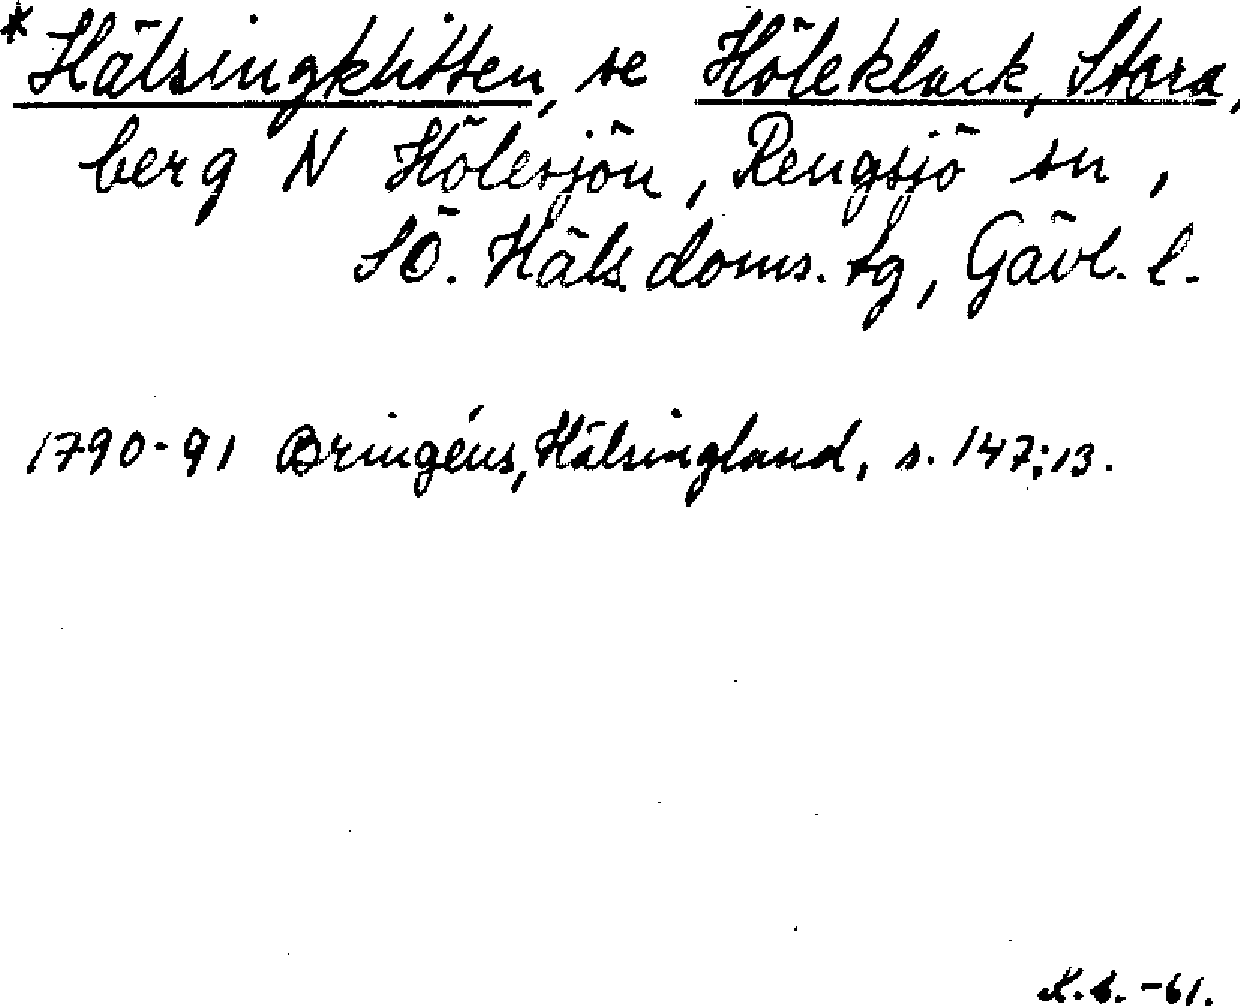 *Hälsingklitten, se Höleklack, Stora,
berg N Hölesjön, Rengsjö sn,
SÖ. Häls. doms. tg, Gävl. l.
1790-91 Bringéus, Hälsingland, s. 147:13.
-61.